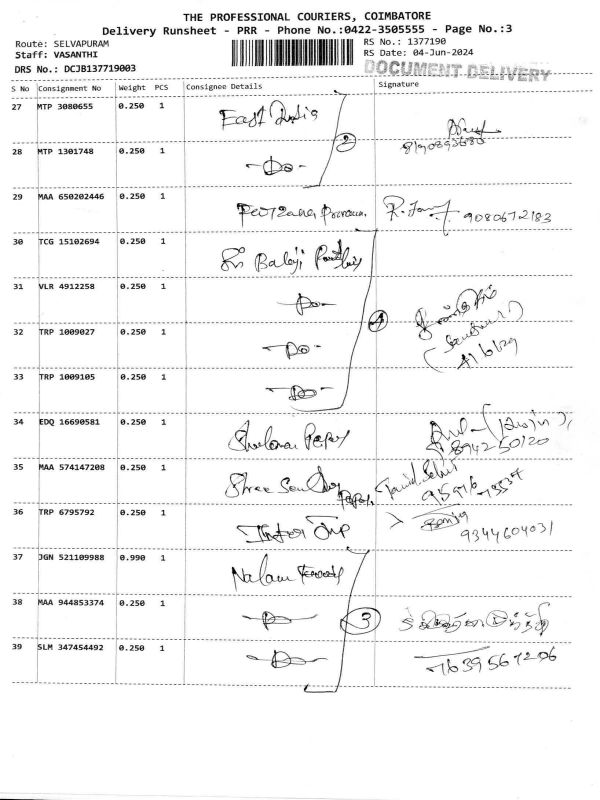 THE PROFESSIONAL COURIERS, COIMBATORE
Delivery Runsheet - PRR - Phone No.:0422-3505555 - Page No.:3
Route: SELVAPURAM
RS No.: 1377190
Staff: VASANTHI
RS Date: 04-Jun-2024
DRS No.: DCJB137719003
DOCUMENT DELIVERY
S No Consignment No Weight PCS Consignee Details Signature
27 MTP 3080655 0.250 1 East India
28 MTP 1301748 0.250 1 -Do- 2
29 MAA 650202446 0.250 1 9080672183
30 TCG 15102694 0.250 1 Sri Balaji
31 VLR 4912258 0.250 1 -Do-
32 TRP 1009027 0.250 1 -Do- 4
33 TRP 1009105 0.250 1 -Do-
34 EDQ 16690581 0.250 1 894250120
35 MAA 574147208 0.250 1 Shree
36 TRP 6795792 0.250 1 9344604031
37 JGN 521109988 0.990 1 Nalam
38 MAA 944853374 0.250 1 -D- 3
39 SLM 347454492 0.250 1 -D- 7639567206